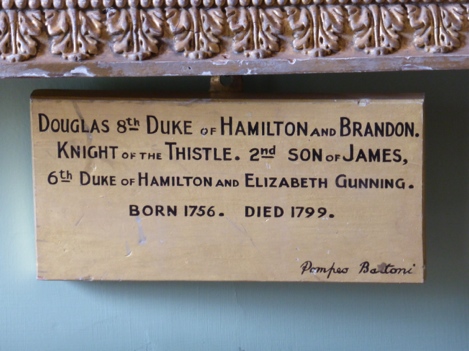 DOUGLAS 8th DUKE OF HAMILTON AND BRANDON.
KNIGHT OF THE THISTLE. 2nd SON OF JAMES,
6th DUKE OF HAMILTON AND ELIZABETH GUNNING.
BORN 1756. DIED 1799.
Pompeo Batoni